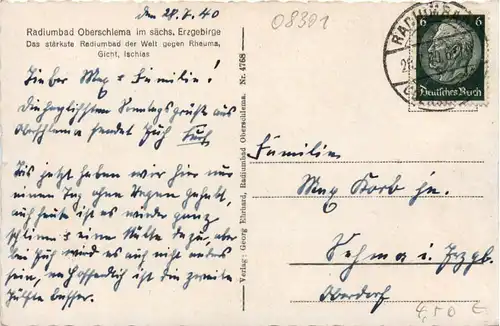 den 28.7.40
08391
Radiumbad Oberschlema im sächs. Erzgebirge
Das stärkste Radiumbad der Welt gegen Rheuma,
Gicht, Ischias
Lieber Max + Familie!
Die herzlichsten Sonntagsgrüße aus
Oberschlema sendet Euch
Bis jetzt haben wir hier nur
einen Tag ohne Regen gehabt,
auch heute ist es wieder ganz
+ eine Kälte dazu, aber
bei Euch wird es auch nicht anders
sein, na hoffentlich ist die zweite
Hälfte besser.
Verlag: Georg Ehrhard, Radiumbad Oberschlema. Nr. 4768
6 6
Deutsches Reich
RADIUMBAD
Familie
Max Korb jr.
Sehma i. Erzgb.
Oberdorf
4,50 €